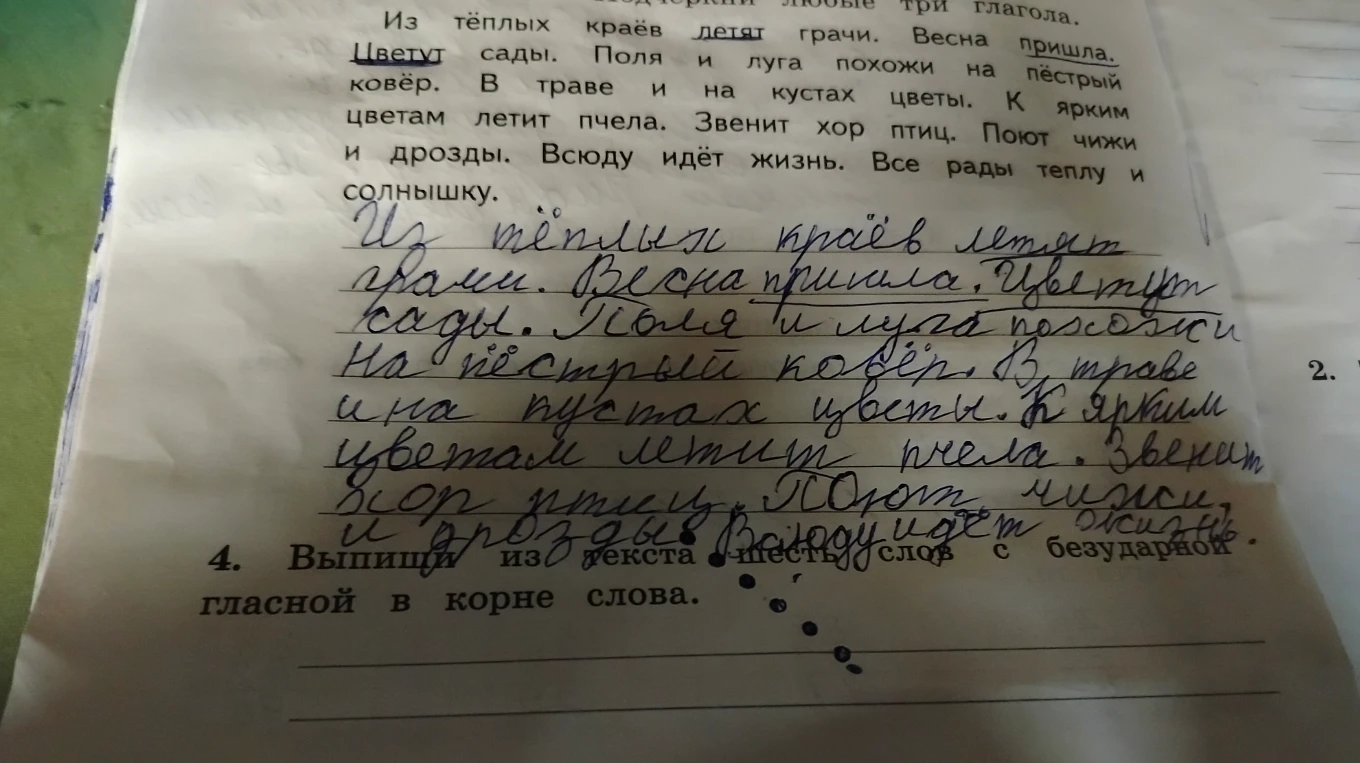 любые три глагола.
Из тёплых краёв летят грачи. Весна пришла.
Цветут сады. Поля и луга похожи на пёстрый
ковёр. В траве и на кустах цветы. К ярким
цветам летит пчела. Звенит хор птиц. Поют чижи
и дрозды. Всюду идёт жизнь. Все рады теплу и
солнышку.
Из тёплых краёв летят
грачи. Весна пришла. Цветут
сады. Поля и луга похожи
на пёстрый ковёр. В траве
и на пустах цветы. К ярким
цветам летит пчела. Звенит
хор птиц. Поют чижи,
и дрозды. Всюду идёт жизнь.
4. Выпиши из текста шесть слов с безударной
гласной в корне слова.
2.